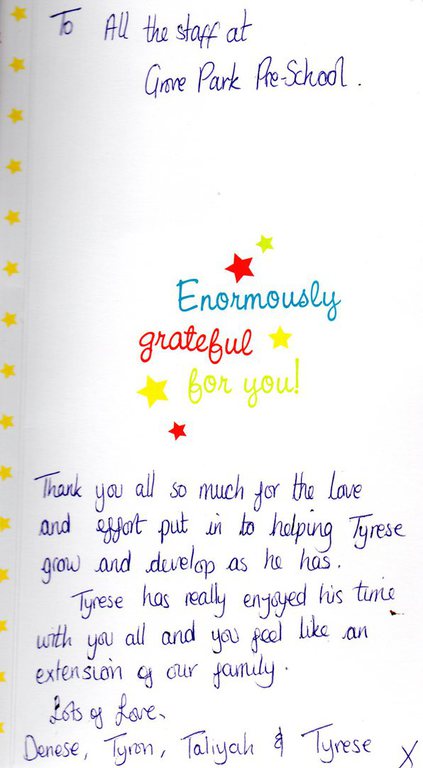 To All the staff at
Grove Park Pre-School.
Enormously
grateful
for you!
Thank you all so much for the love
and effort put in to helping Tyrese
grow and develop as he has.
Tyrese has really enjoyed his time
with you all and you feel like an
extension of our family.
Lots of Love,
Denese, Tyron, Taliyah & Tyrese X